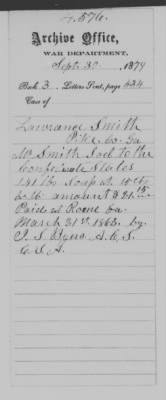 4.576.
Archive Office,
WAR DEPARTMENT,
Sept. 30, 1879
Book 3. Letters Sent, page 634
Case of
Lawrance Smith
Pike Co. Ga
Mr Smith Sold to the
Confederate States
141 lbs Soap at 15 cts
amount $21.15
Paid at Rome Ga.
March 31st 1863. by
A.C.S.
C.S.A.